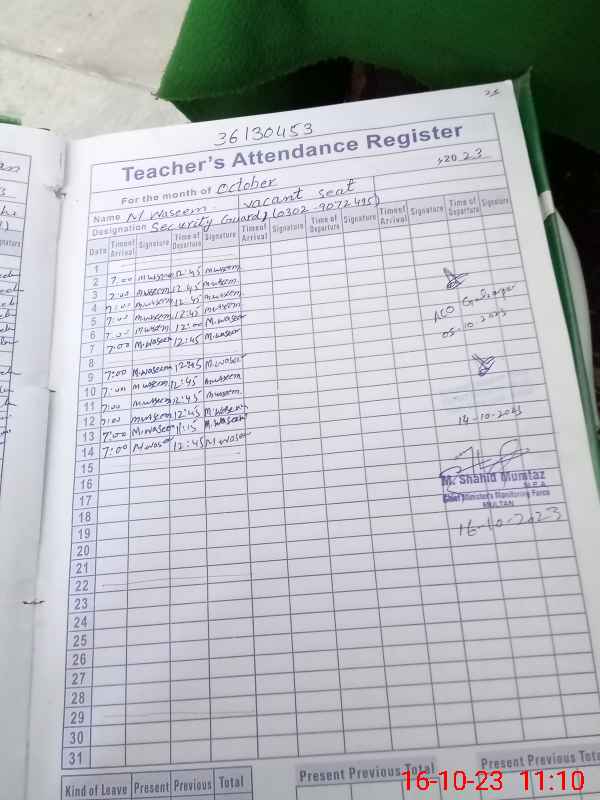 36130453
Teacher's Attendance Register
For the month of October 2023
Name M Waseem vacant seat
Designation Security Guard, (0302-9072495)
Date Time of Arrival Signature Time of Departure Signature Time of Arrival Signature Time of Departure Signature Time of Arrival Signature Time of Departure Signature
1
2 7:00 M waseem 12:45 M waseem
3 7:00 M waseem 12:45 M waseem
4 7:00 M waseem 12:45 M waseem
5 7:00 M waseem 12:45 M waseem
6 7:00 M waseem 12:00 M waseem
7 7:00 M.waseem 12:45 M.waseem
8
9 7:00 M.waseem 12:45 M.waseem
10 7:00 M waseem 12:45 M waseem
11 7:00 M waseem 12:45 M waseem
12 7:00 M waseem 12:45 M.waseem
13 7:00 M.waseem 11:15 M.waseem
14 7:00 M.waseem 12:45 M.waseem
15
16
17
18
19
20
21
22
23
24
25
26
27
28
29
30
31
AEO
05-10-2023
14-10-2023
M. Shahid Mumtaz
M.E.A
Chief Minister's Monitoring Force
MULTAN
16-10-2023
Kind of Leave Present Previous Total
Present Previous Total
Present Previous Total
16-10-23 11:10